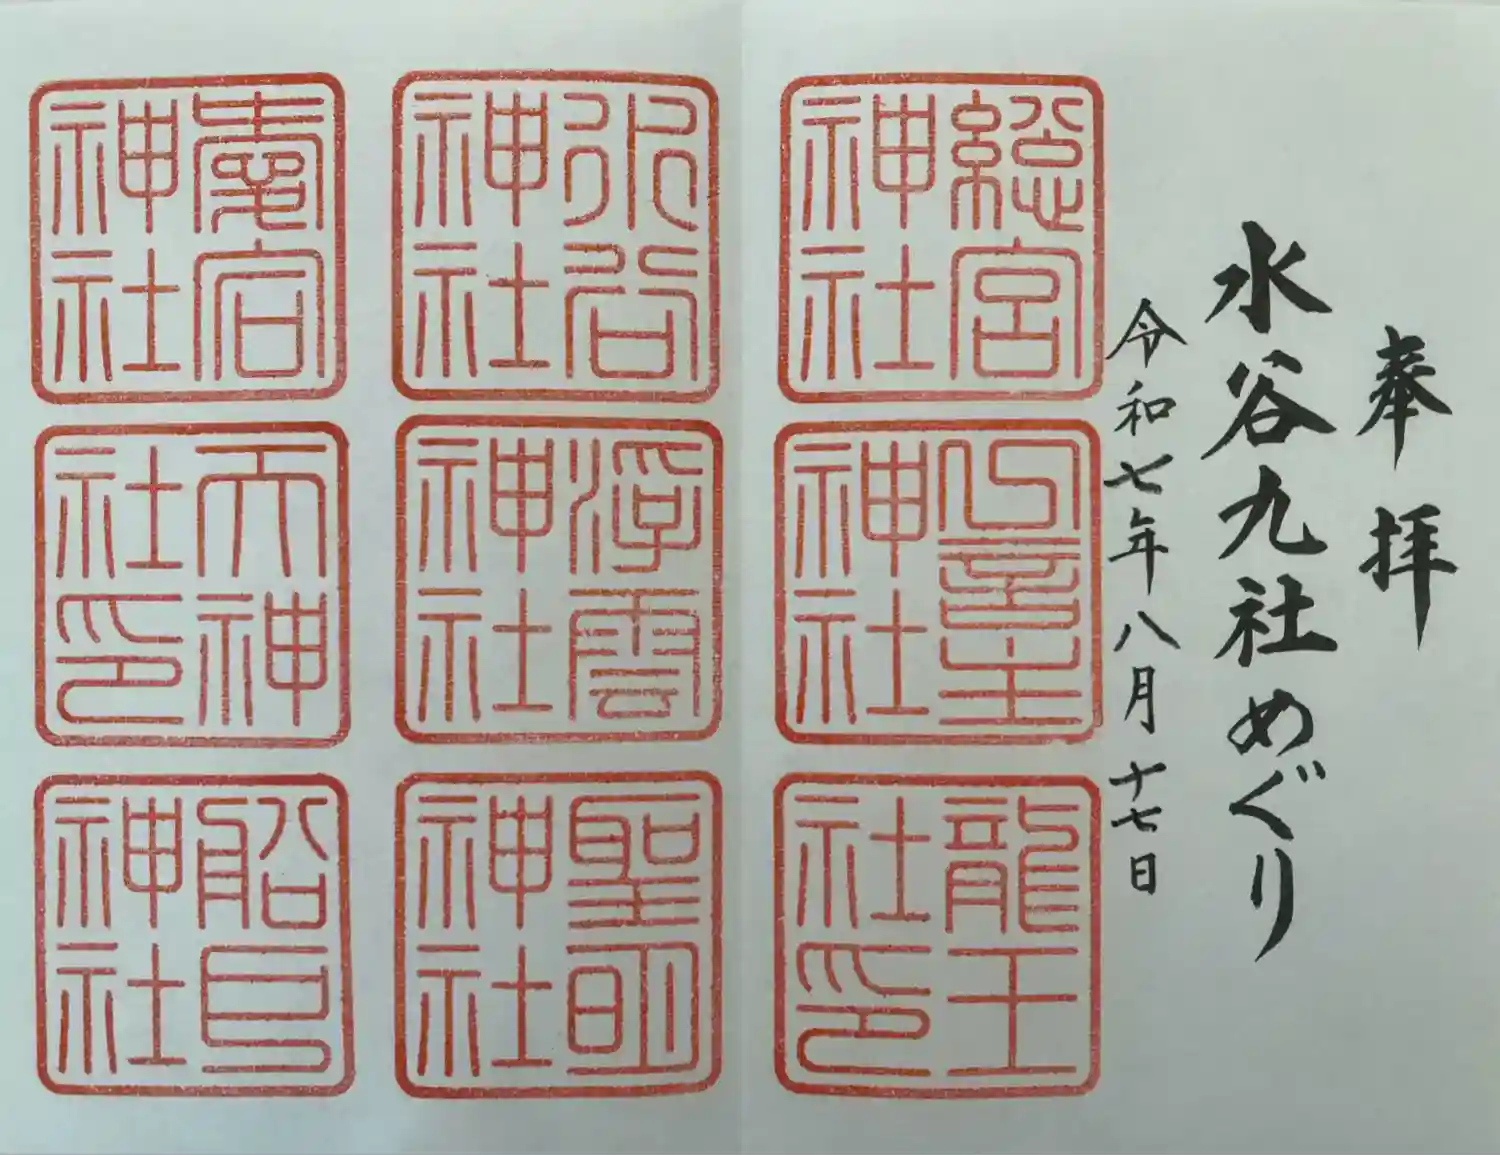 奉拝
水谷九社めぐり
令和七年八月十七日
総宮神社
神社
龍王社印
水谷神社
浮雲神社
聖明神社
愛宕神社
天神社印
神社